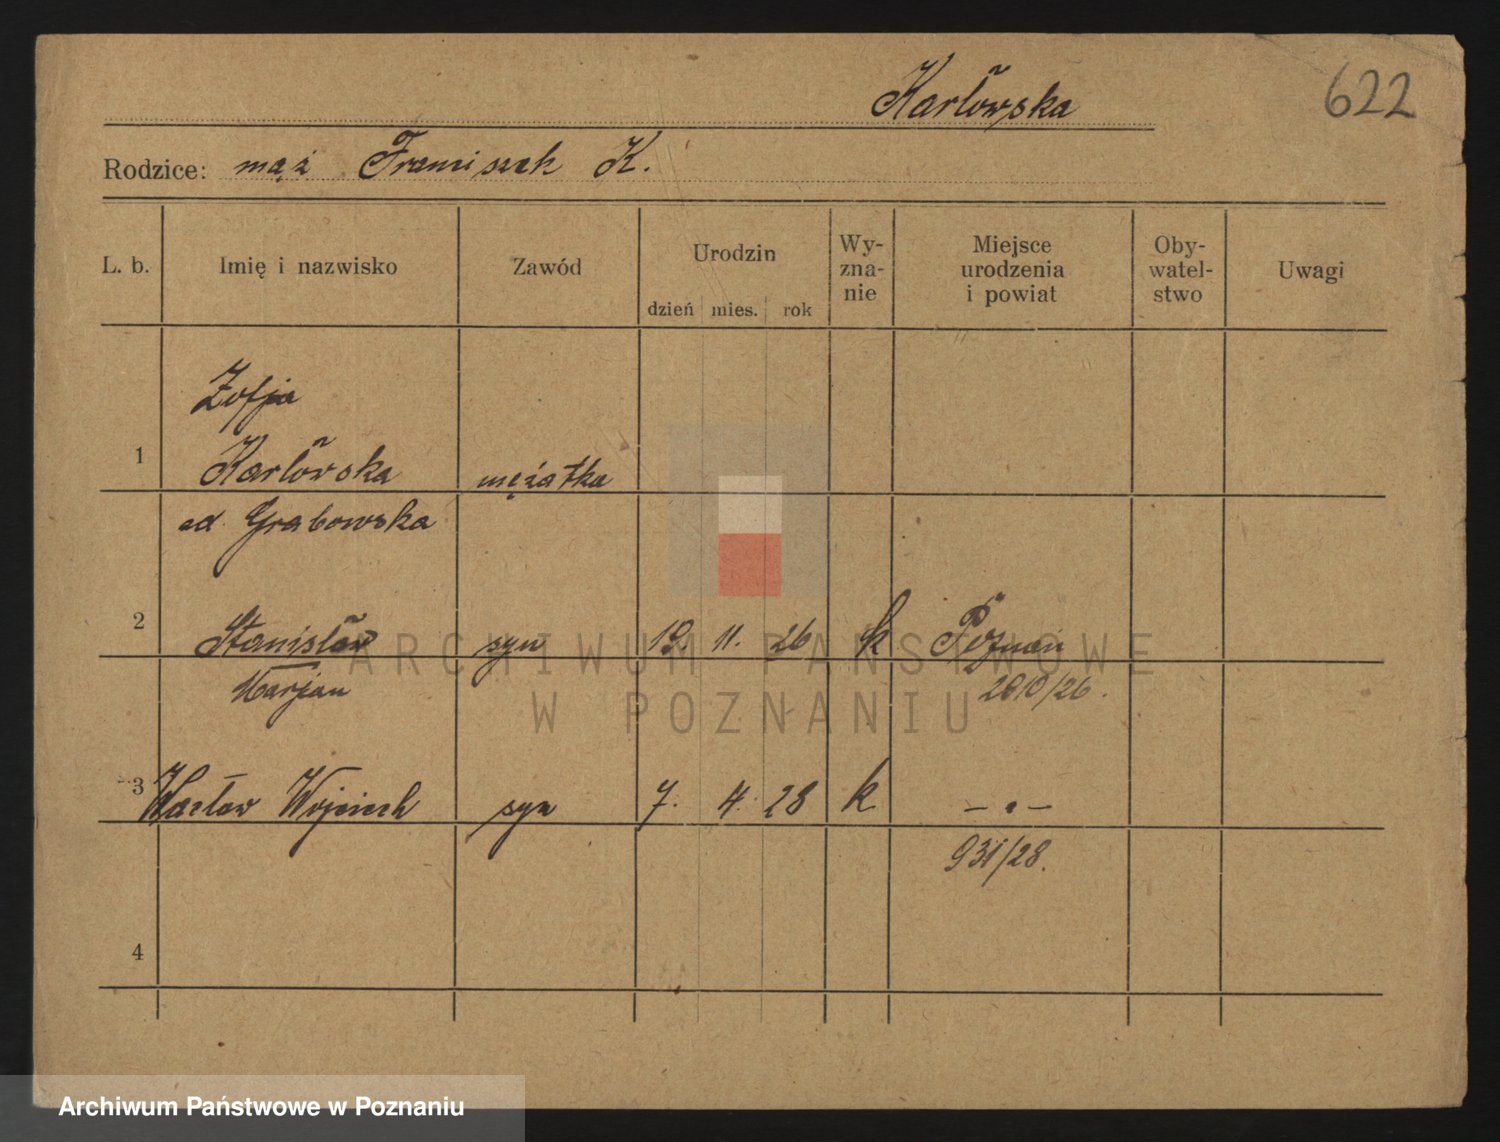 Karlowska
622
Rodzice: mąż Franciszek K.
L. b. Imię i nazwisko Zawód Urodzin Wy-zna-nie Miejsce urodzenia i powiat Oby-watel-stwo Uwagi
dzień mies. rok
Zofja
1 Karlowska mężatka
Grabowska
2 Stanisław syn 19. 11. 26 k Poznań
Marjan 2010/26.
3 Wacław Wojciech syn 7. 4. 28 k — „ —
931/28.
4
ARCHIWUM PAŃSTWOWE
W POZNANIU
Archiwum Państwowe w Poznaniu